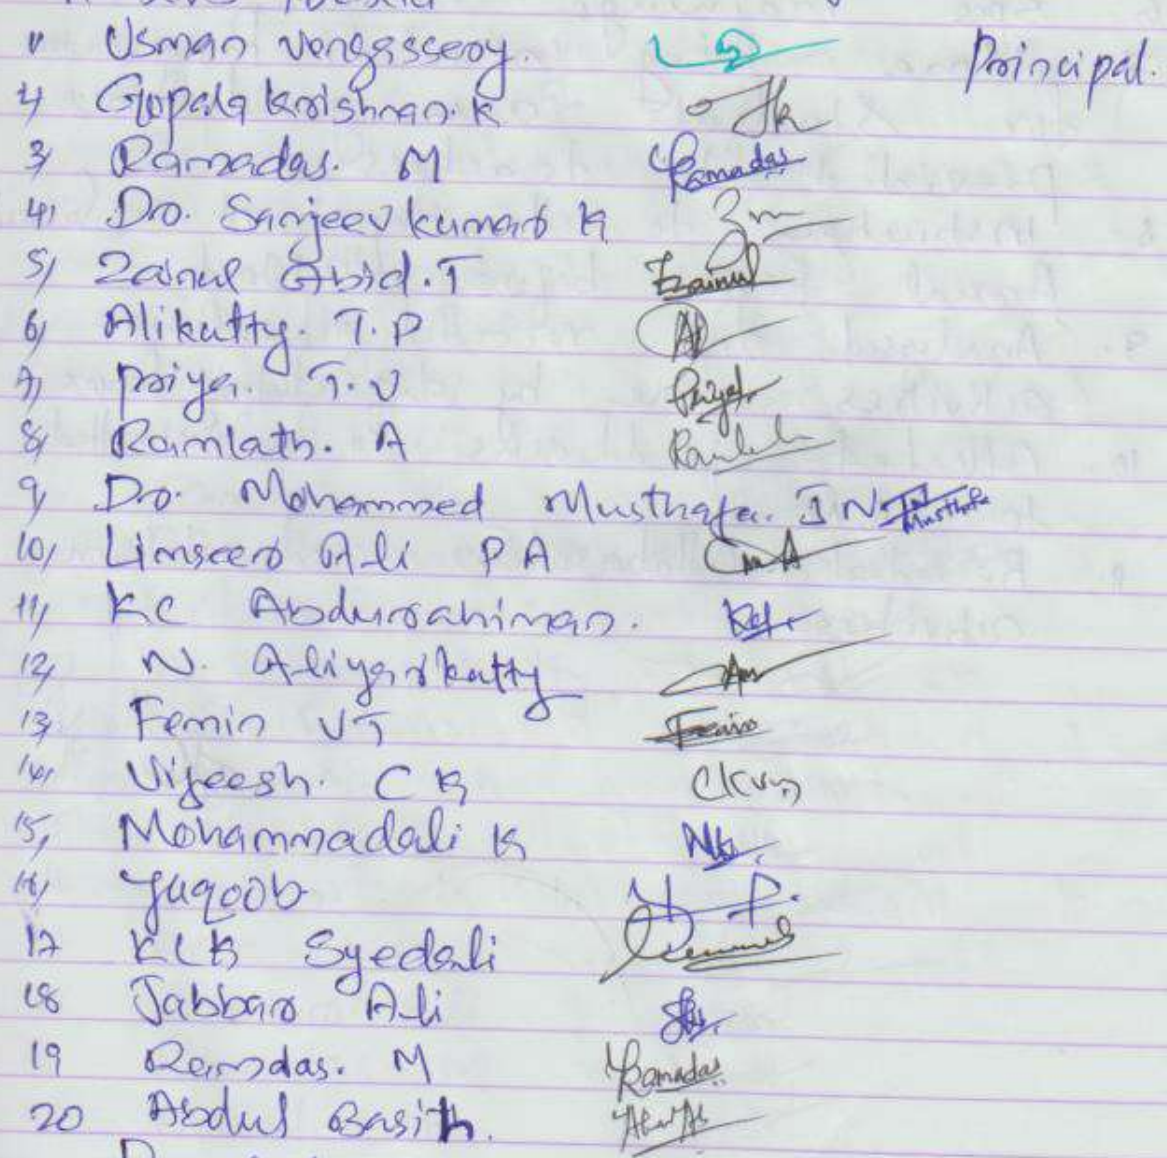 1, Usman Vengasseery. Principal.
2, Gopala Krishnan. K
3, Ramadas. M Ramadas
4, Dr. Sanjeevkumar K
5, Zainul Abid. T Zainul
6, Alikutty. T.P
7, Priya. T.V Priya
8, Ramlath. A
9, Dr. Mohammed Musthafa. I N Musthafa
10, Limseer Ali P A
11, KC Abdurahiman.
12, N. Aliyarikutty
13, Femin VT Femin
14, Vijeesh. C K
15, Mohammadali K
16, Yaqoob
17 KLK Syedali
18 Jabbar Ali
19 Ramdas. M Ramadas
20 Abdul Basith.